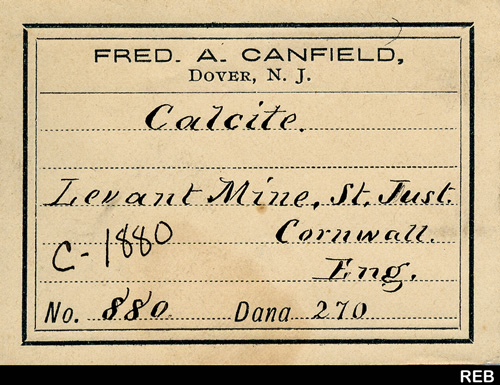 FRED. A. CANFIELD,
DOVER, N. J.
Calcite.
Levant Mine, St. Just.
Cornwall.
C-1880
Eng.
No. 880. Dana 270
REB